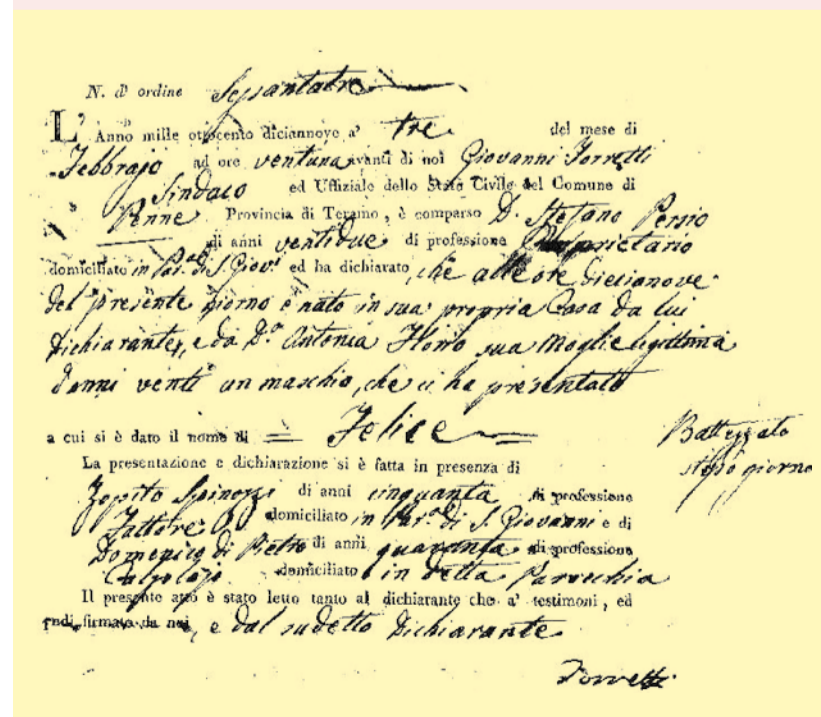 N. d' ordine Sessantatre
L' Anno mille ottocento diciannove a' tre del mese di
Febbrajo ad ore ventuna avanti di noi Giovanni Torretti
Sindaco ed Uffiziale dello Stato Civile del Comune di
Penne Provincia di Teramo, è comparso D. Stefano Persio
di anni ventidue di professione Proprietario
domiciliato in Par.a di S. Giov.i ed ha dichiarato, che alle ore diecianove
del presente giorno è nato in sua propria Casa da lui
Dichiarante, e da D.a Antonia Florio sua Moglie legittima
d'anni venti un maschio, che ci ha presentato
a cui si è dato il nome di = Felice =
Battezzato
stesso giorno
La presentazione e dichiarazione si è fatta in presenza di
Zopito Spinozzi di anni cinquanta di professione
Fattore domiciliato in Par.a di S. Giovanni e di
Domenico di Pietro di anni quaranta di professione
Calzolajo domiciliato in detta Parocchia
Il presente atto è stato letto tanto al dichiarante che a' testimoni, ed
indi firmato da noi, e dal sudetto Dichiarante
Torretti